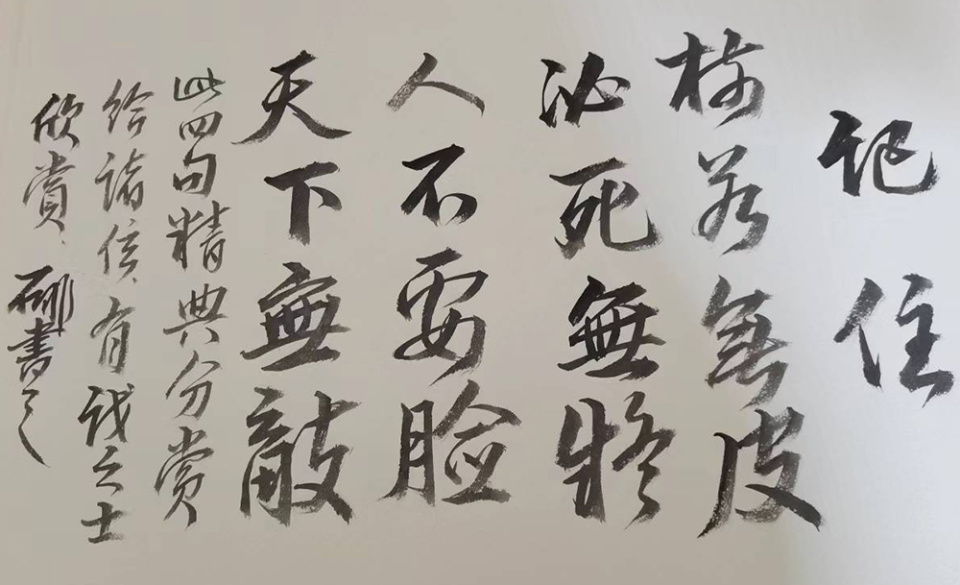 记住
树若無皮
必死無疑
人不要脸
天下無敵
此四句精典分赏
给诸位有识之士
欣赏
書之